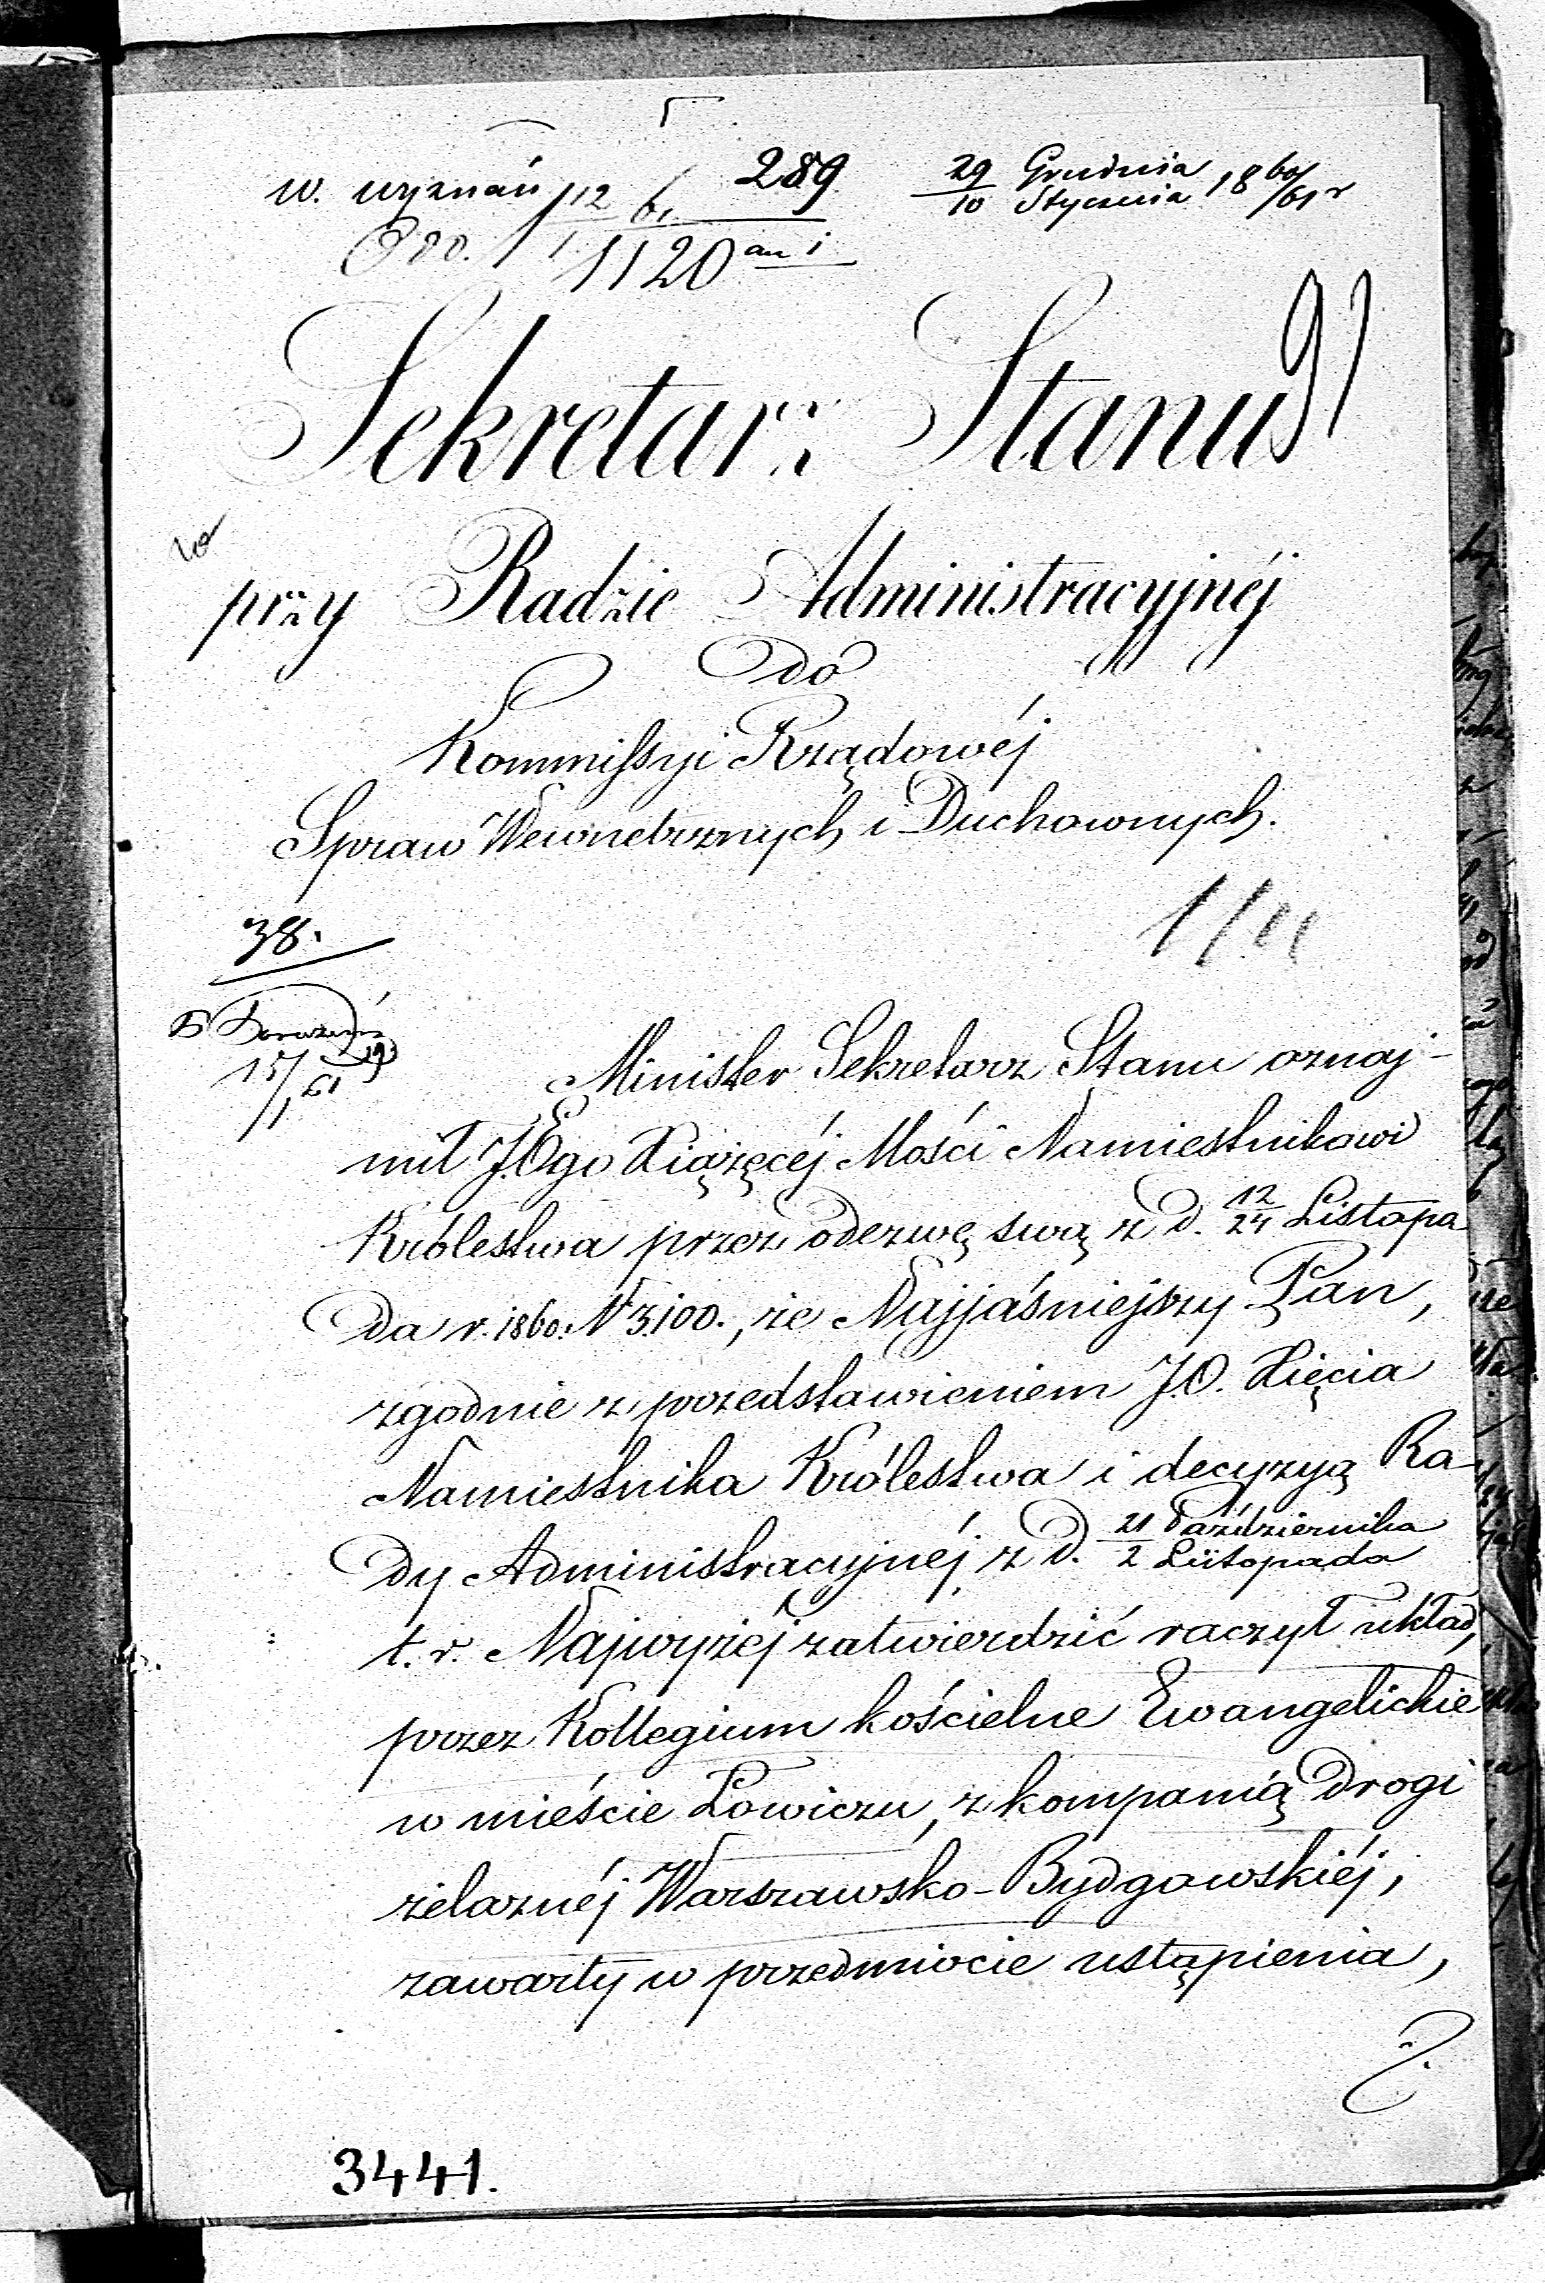 w. wyznań 12/1 61 289
1120 an i
29 Grudnia / 10 Stycznia 1860/61 r
91
Sekretarz Stanu
przy Radzie Administracyjnéj
do
Kommissyi Rządowéj
Spraw Wewnetrznych i Duchownych.
38.
15/1 61
Minister Sekretarz Stanu oznaj-
mił J.O.go Xiążęcéj Mości Namiestnikowi
Królestwa przez odezwę swą z d. 12/24 Listopa
da r. 1860. N 3,100., że Najjaśniejszy Pan,
zgodnie z przedstawieniem J.O. Xięcia
Namiestnika Królestwa i decyzyą Ra-
dy Administracyjnéj z d. 21 Października / 2 Listopada
t. r. Najwyżéj zatwierdzić raczył układ,
przez Kollegium kościelne Ewangelickie
w mieście Łowiczu, z kompanią Drogi
żelaznéj Warszawsko-Bydgowskiéj,
zawarty w przedmiocie ustąpienia,
3441.